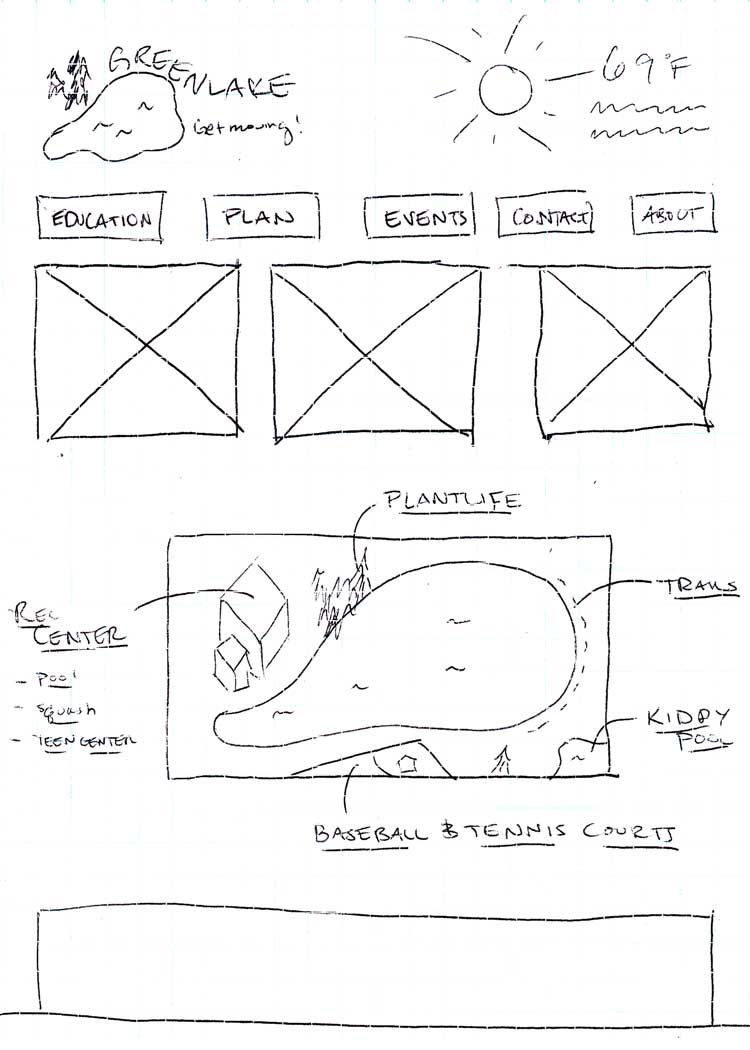 GREENLAKE
Get moving!
69°F
EDUCATION
PLAN
EVENTS
CONTACT
ABOUT
PLANTLIFE
TRAILS
REC
CENTER
- Pool
- Squash
- TEEN CENTER
KIDDY
POOL
BASEBALL & TENNIS COURTS